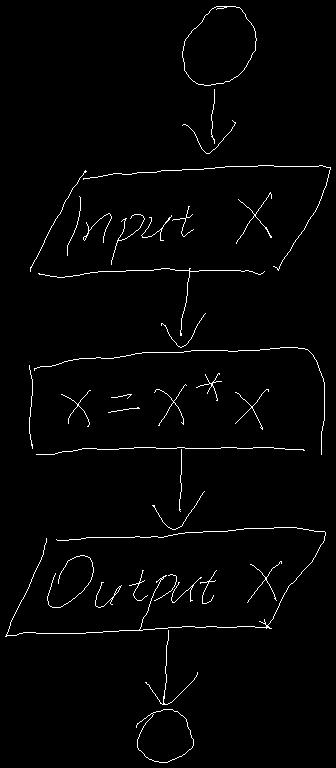 Input X
x = x * x
Output X